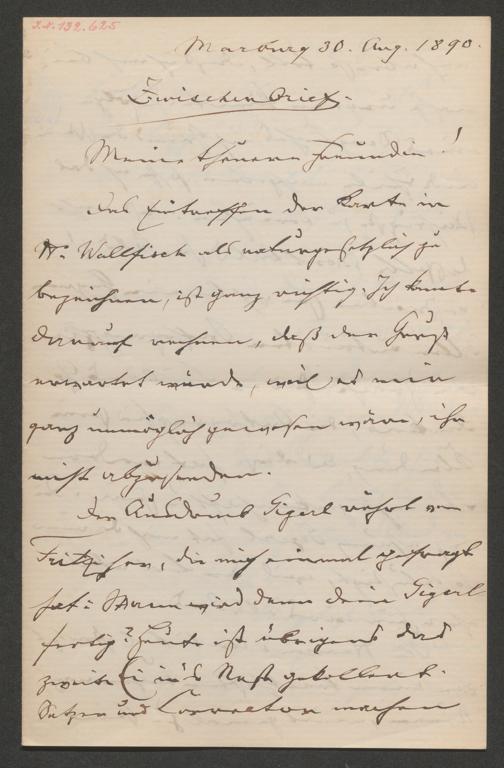 I.N. 132.625
Marburg 30. Aug. 1890.
Zwischenbrief.
Meine theuere Freundin!
Das Eintreffen der Karte im
Wallfisch als naturgesetzlich zu
bezeichnen, ist ganz richtig. Ich konnte
darauf rechnen, daß der Gruß
erwartet würde, weil es mir
ganz unmöglich gewesen wäre, ihn
nicht abzusenden.
Der Ausdruck Gigerl rührt von
Fritzchen, die mich einmal gefragt
hat: Wann wird denn dein Gigerl
fertig? Heute ist übrigens das
zweite Ei ins Nest gekollert.
Setzer und Corrector machen